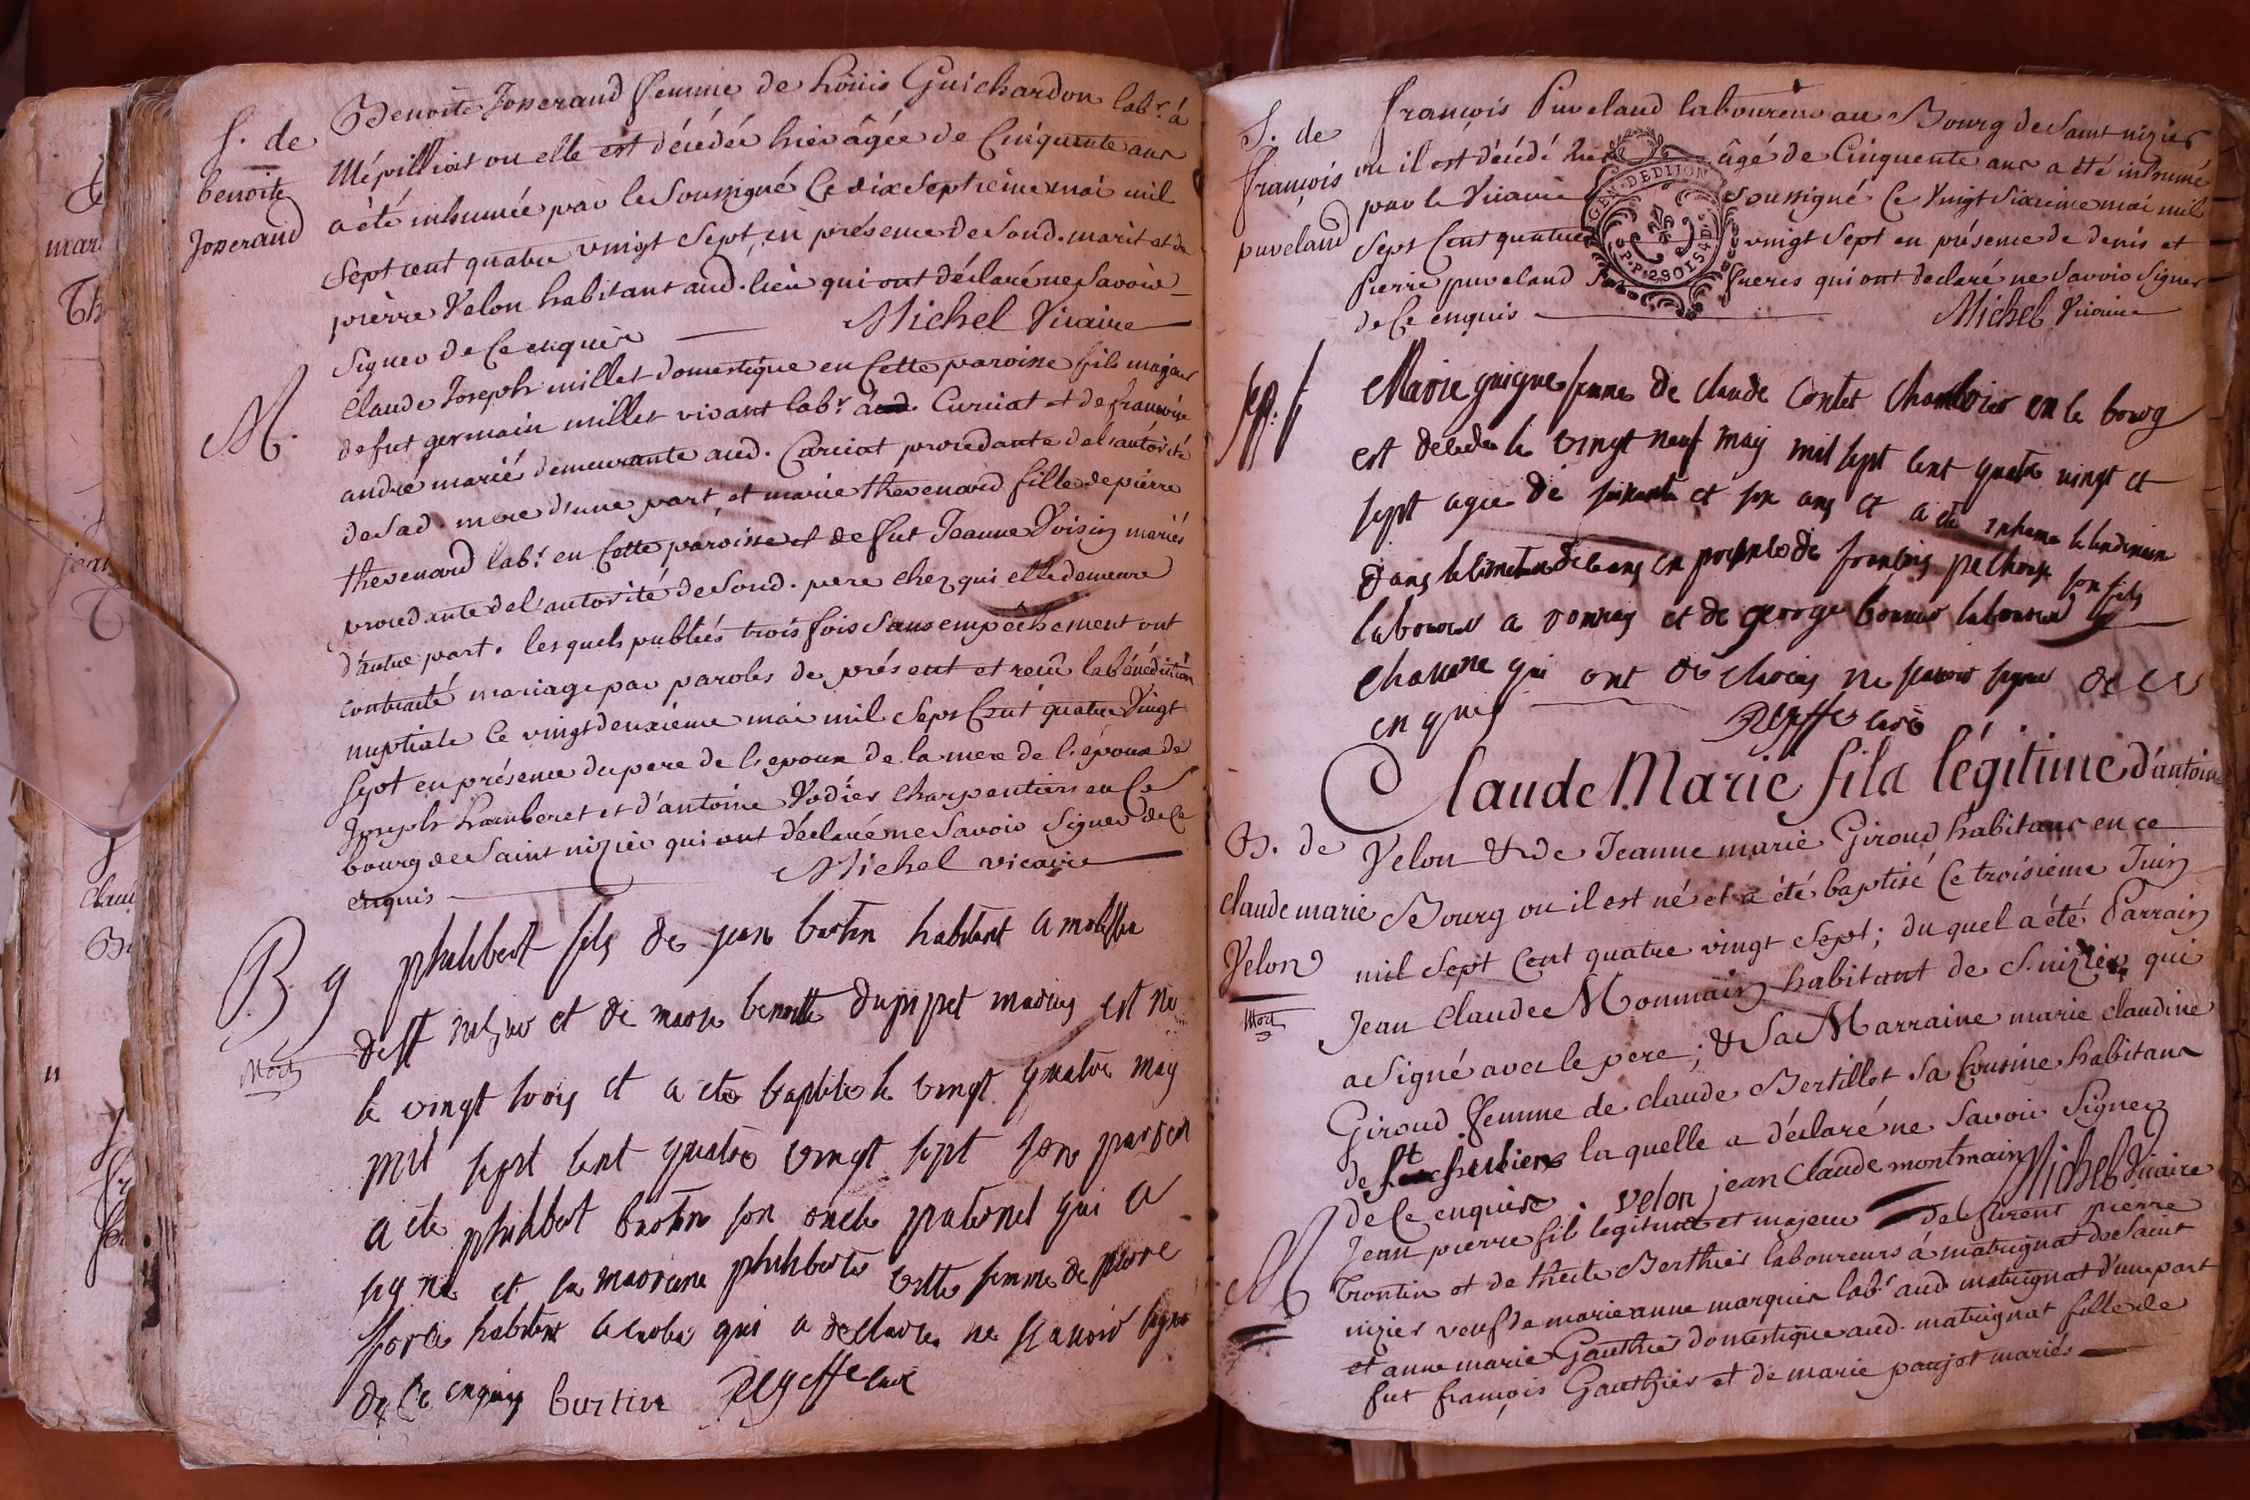 S. de
benoite
Josserand
Benoite Josserand femme de Loüis Guichardon lab.r à
Mépilliat ou elle est décédée hier âgée de Cinquante ans
a été inhumée par le Soussigné Ce dix septieme mai mil
Sept cent quatre vingt Sept, en présence de Sond. marit et de
pièrre Vélon habitant aud. lieu qui ont déclaré ne Savoir
Signer de Ce enquis Michel Vicaire
M.
Claude Joseph millet domestique en Cette paroisse fils majeur
de fut germain millet vivant lab.r à Curciat et de francoise
andré mariés demeurante aud. Curciat procedante de l'autórité
de Sad. mere d'une part, et marie thevenard fille de pierre
thevenard lab.r en Cette paroisse et de fut Jeanne Voisin mariés
procedante de l'autorité de Sond. pere chez qui elle demeure
d'autre part. lesquels publiés trois fois Sans empêchement ont
contracté mariage par paroles de présent et recû la bénédiction
nuptiale Ce vingt deuxième mai mil Sept Cent quatre Vingt
Sept en présence du pere de l'epoux de la mere de l'époux de
Joseph Lamberet et d'antoine Vodier charpentiers en Ce
bourg de Saint nizier qui ont déclaré ne Savoir Signer de Ce
enquis Michel vicaire
B. g
Mort
philibert fils de jean bertin habitant a
de st nizier et de marie benoitte dujippet maries est ne
le vingt trois et a ete baptise le vingt quatre may
mil sept cent quatre vingt sept son parrein
a ete philibert bertin son oncle paternel qui a
signe et sa marreine philiberte femme de pierre
habitant a qui a declaree ne scavoir signe
de Ce enquis burtin Reyffe curé
S. de
françois
puveland
françois Puveland laboureur au Bourg de Saint nizier
ou il est décédé hier âgé de Cinquente ans a été inhumé
par le Vicaire Soussigné Ce Vingt Sixieme mai mil
Sept Cent quatre vingt Sept en présence de denis et
Pierre puveland frères qui ont declaré ne Savoir Signer
de Ce enquis Michel Vicaire
GEN. DE DIJON
P.P. 2901S 4D
sep. f
Marie guigue femme de claude Contet en le bourg
est decedee le vingt neuf may mil sept cent quatre vingt et
sept agee de soixante et six ans et a ete inhumee le lendemain
dans le cimetiere de ceans en presence de françois son fils
laboureur a vonnas et de george laboureur a
chavanne qui ont declares ne scavoir signer de ce
enquis Reyffe curé
B. de
claude marie
Velon
Mort
Claude Marie fils légitime d'antoine
Velon & de Jeanne marie Giroud habitans en ce
Bourg ou il est né et a été baptisé Ce troisième Juin
mil Sept Cent quatre vingt Sept; du quel a été Parrain
Jean Claude Monmain habitant de S. nizier qui
a Signé avec le pere; & Sa Marraine marie claudine
Giroud femme de claude Bertillet Sa Cousine habitans
de St la quelle a déclaré ne Savoir Signer
de Ce enquise. velon jean claude montmain Michel Vicaire
M
Jean pierre fils legitime et majeur de furent pierre
trontin et de thecle Berthier laboureurs à matrignat de Saint
nizier veuf de marie anne marquis lab.r aud matrignat d'une part
et anne marie Gauthier domestique aud. matrignat fille de
fut françois Gauthier et de marie paujot mariés